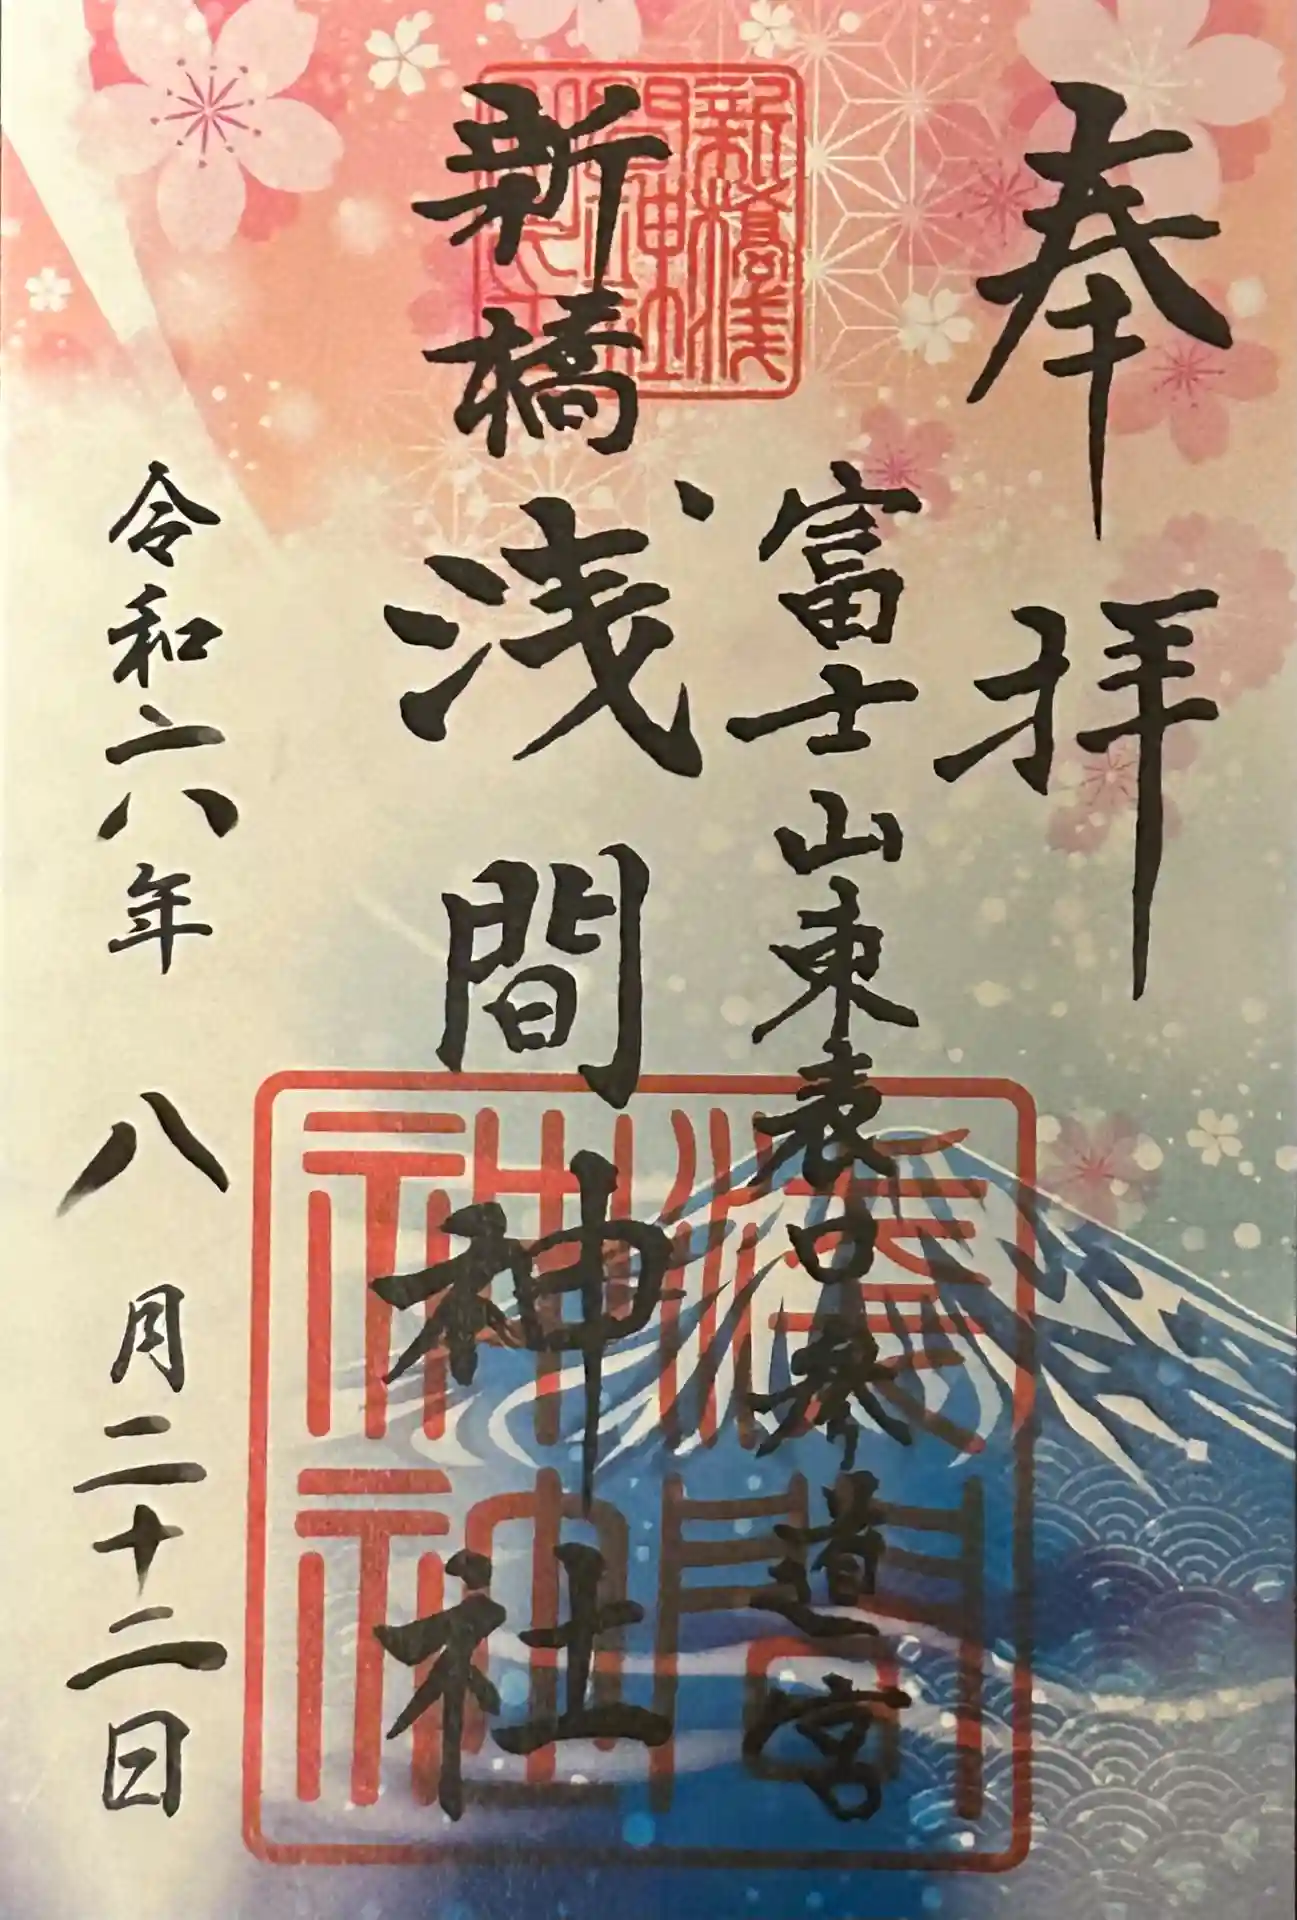 奉拝
富士山東表口参道一宮
新橋浅間神社
令和六年八月二十二日
新橋浅
間神社
浅間
神社